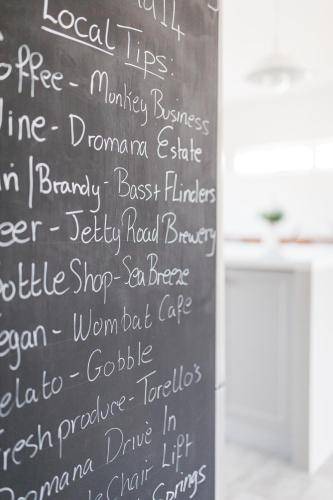 Local Tips:
offee - Monkey Business
ine - Dromana Estate
in | Brandy - Bass + Flinders
eer - Jetty Road Brewery
ottle Shop - Sea Breeze
egan - Wombat Cafe
elato - Gobble
resh produce - Torello's
romana Drive In
Chair Lift
Springs